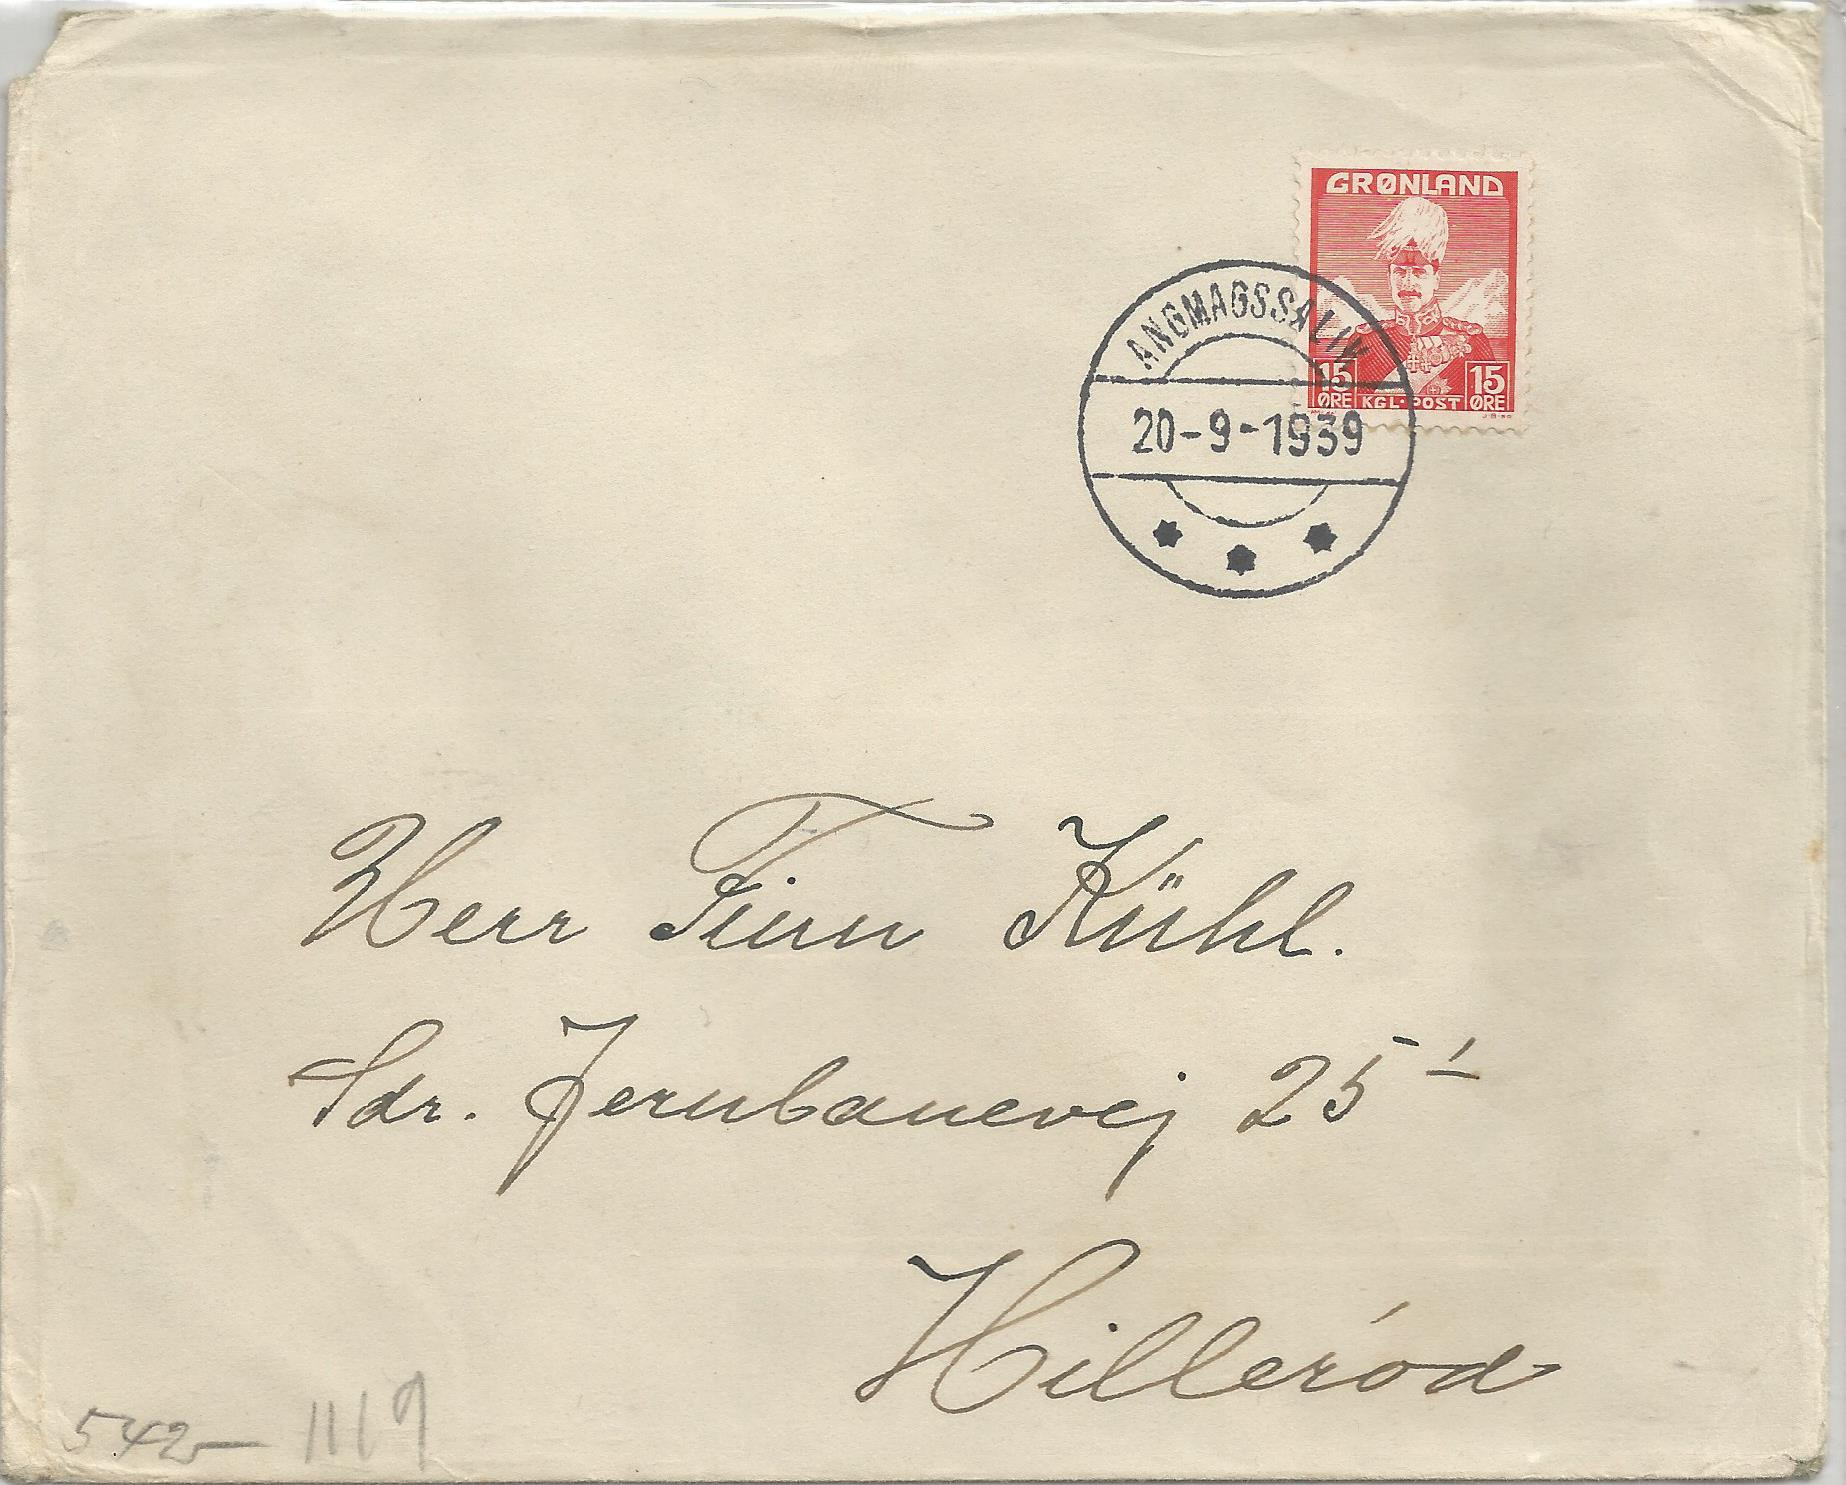 GRØNLAND
15 ØRE KGL·POST 15 ØRE
ANGMAGSSALIK
20-9-1939
Herr Finn Kühl.
Sdr. Jernbanevej 25 1
Hilleród
542-